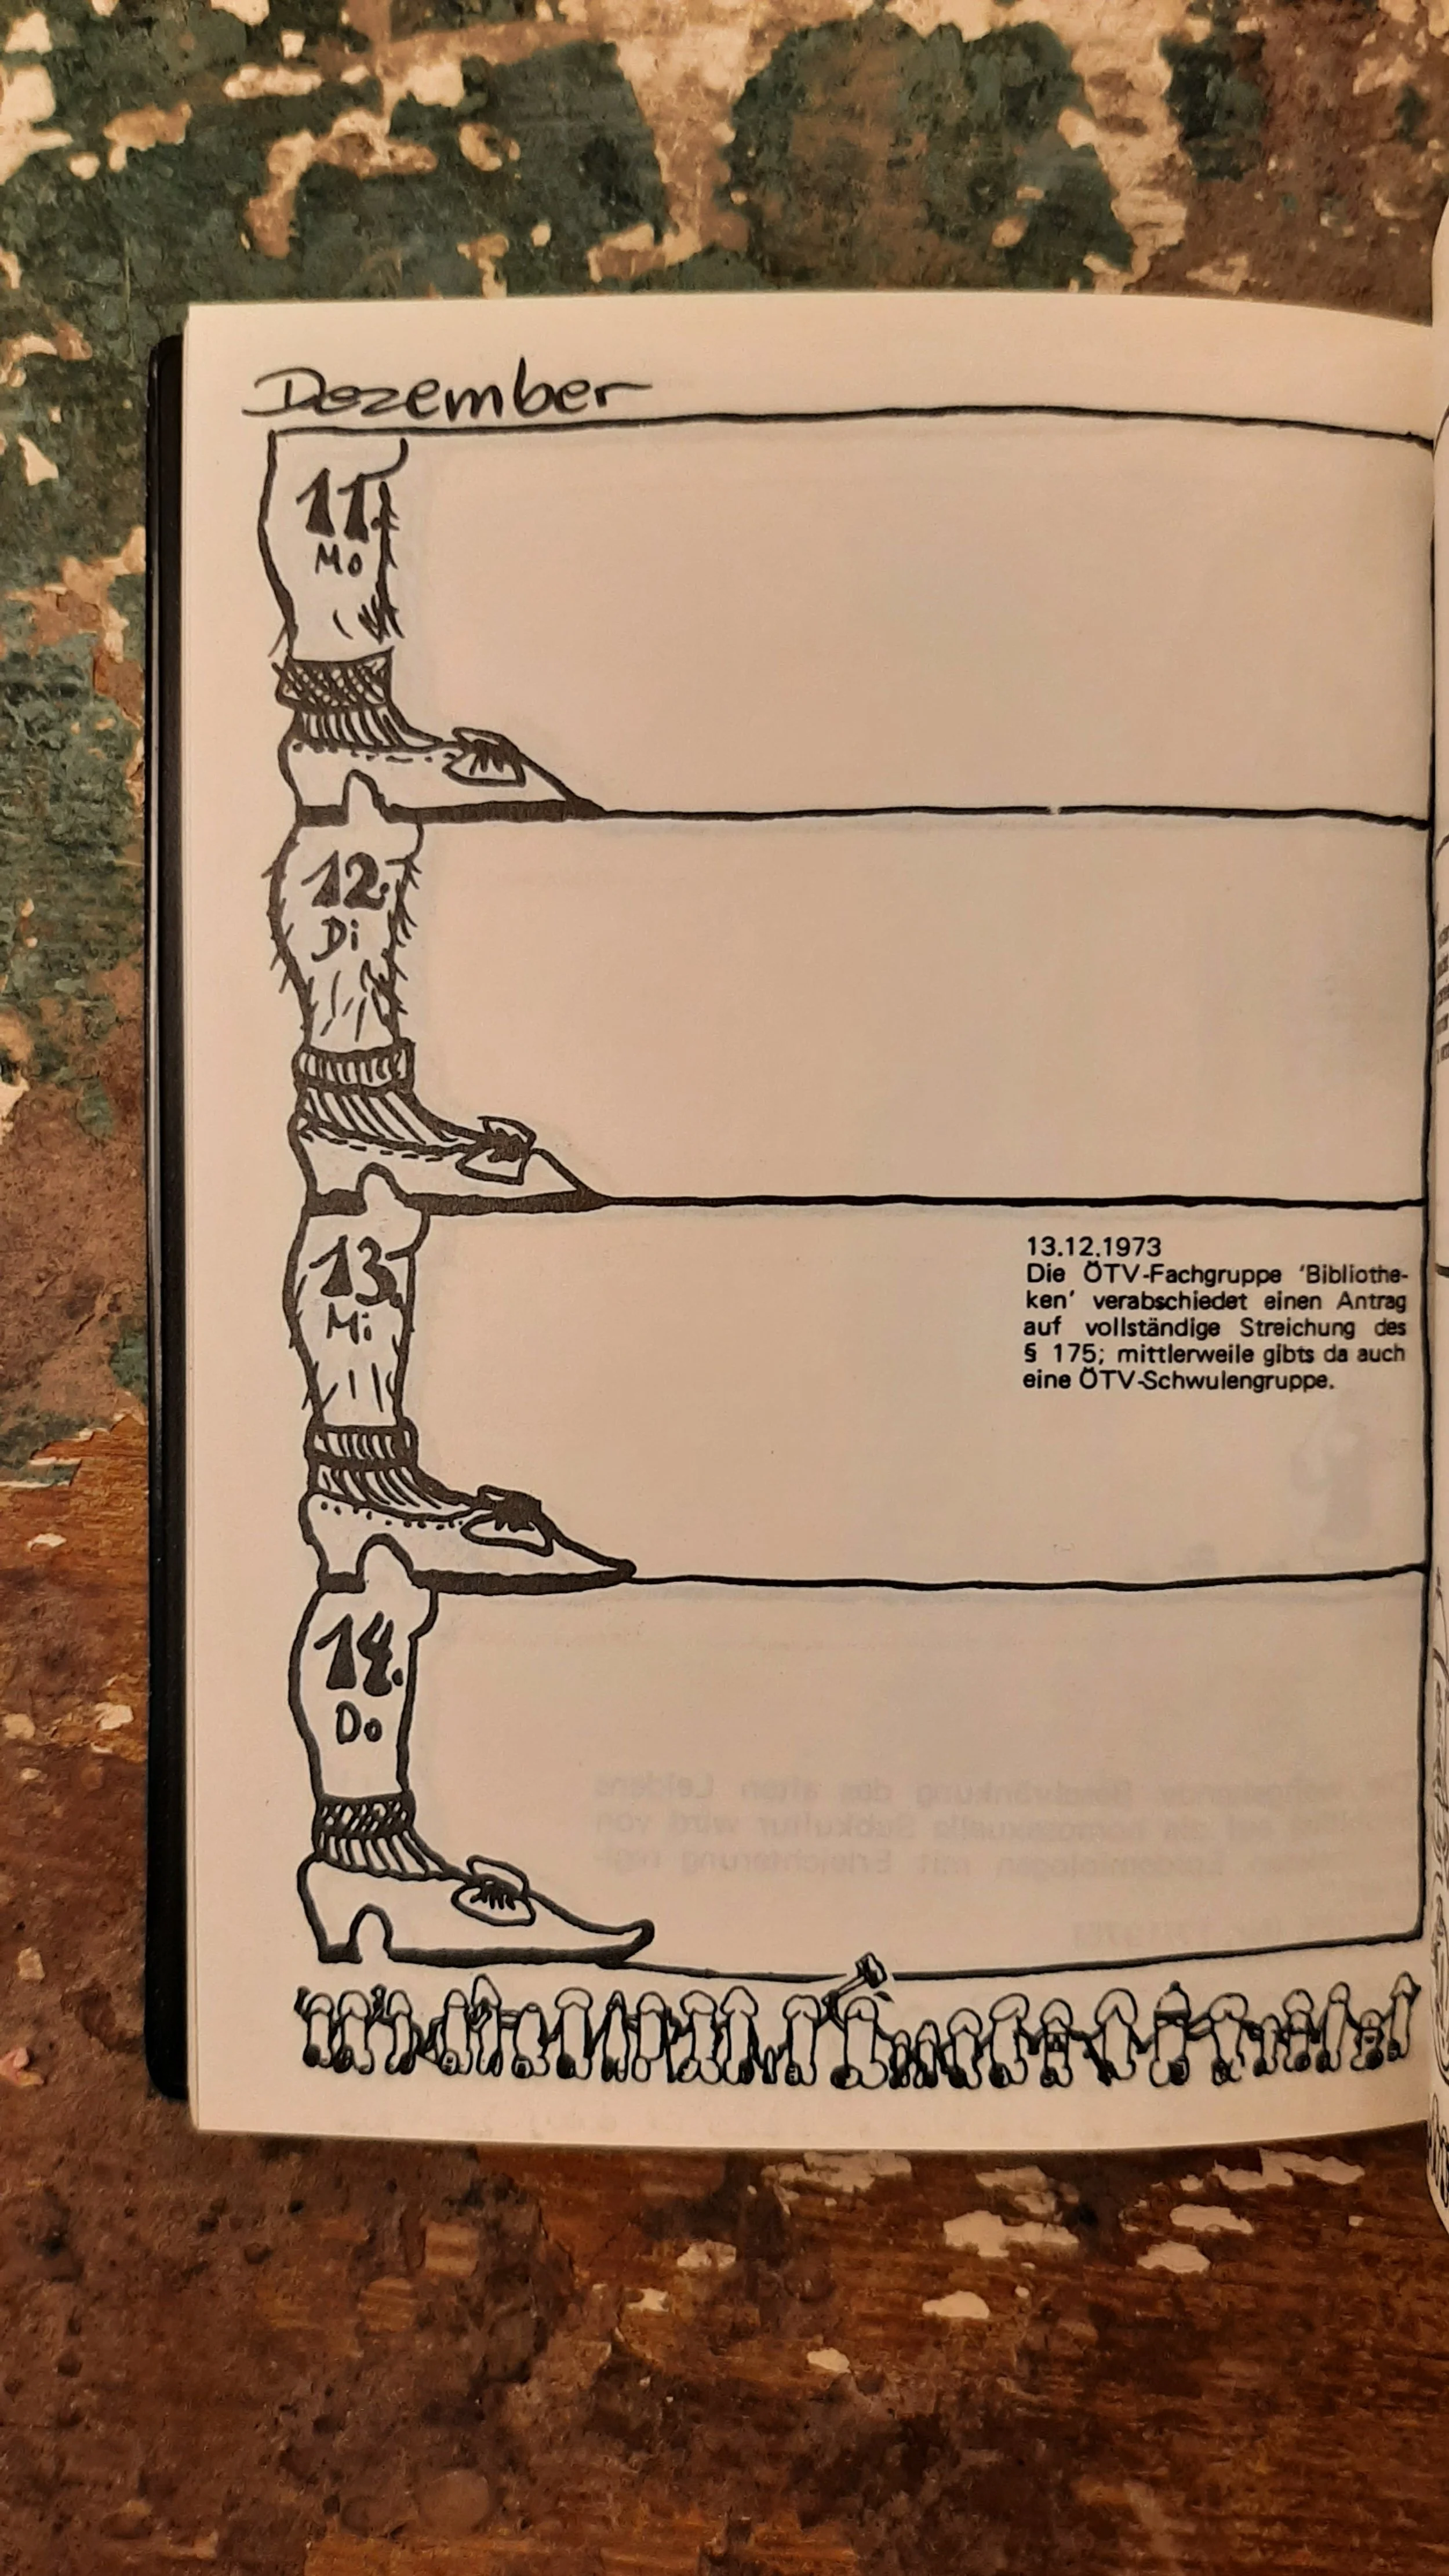 Dezember
11.
Mo
12.
Di
13.
Mi
13.12.1973
Die ÖTV-Fachgruppe 'Bibliothe-
ken' verabschiedet einen Antrag
auf vollständige Streichung des
§ 175; mittlerweile gibts da auch
eine ÖTV-Schwulengruppe.
14.
Do